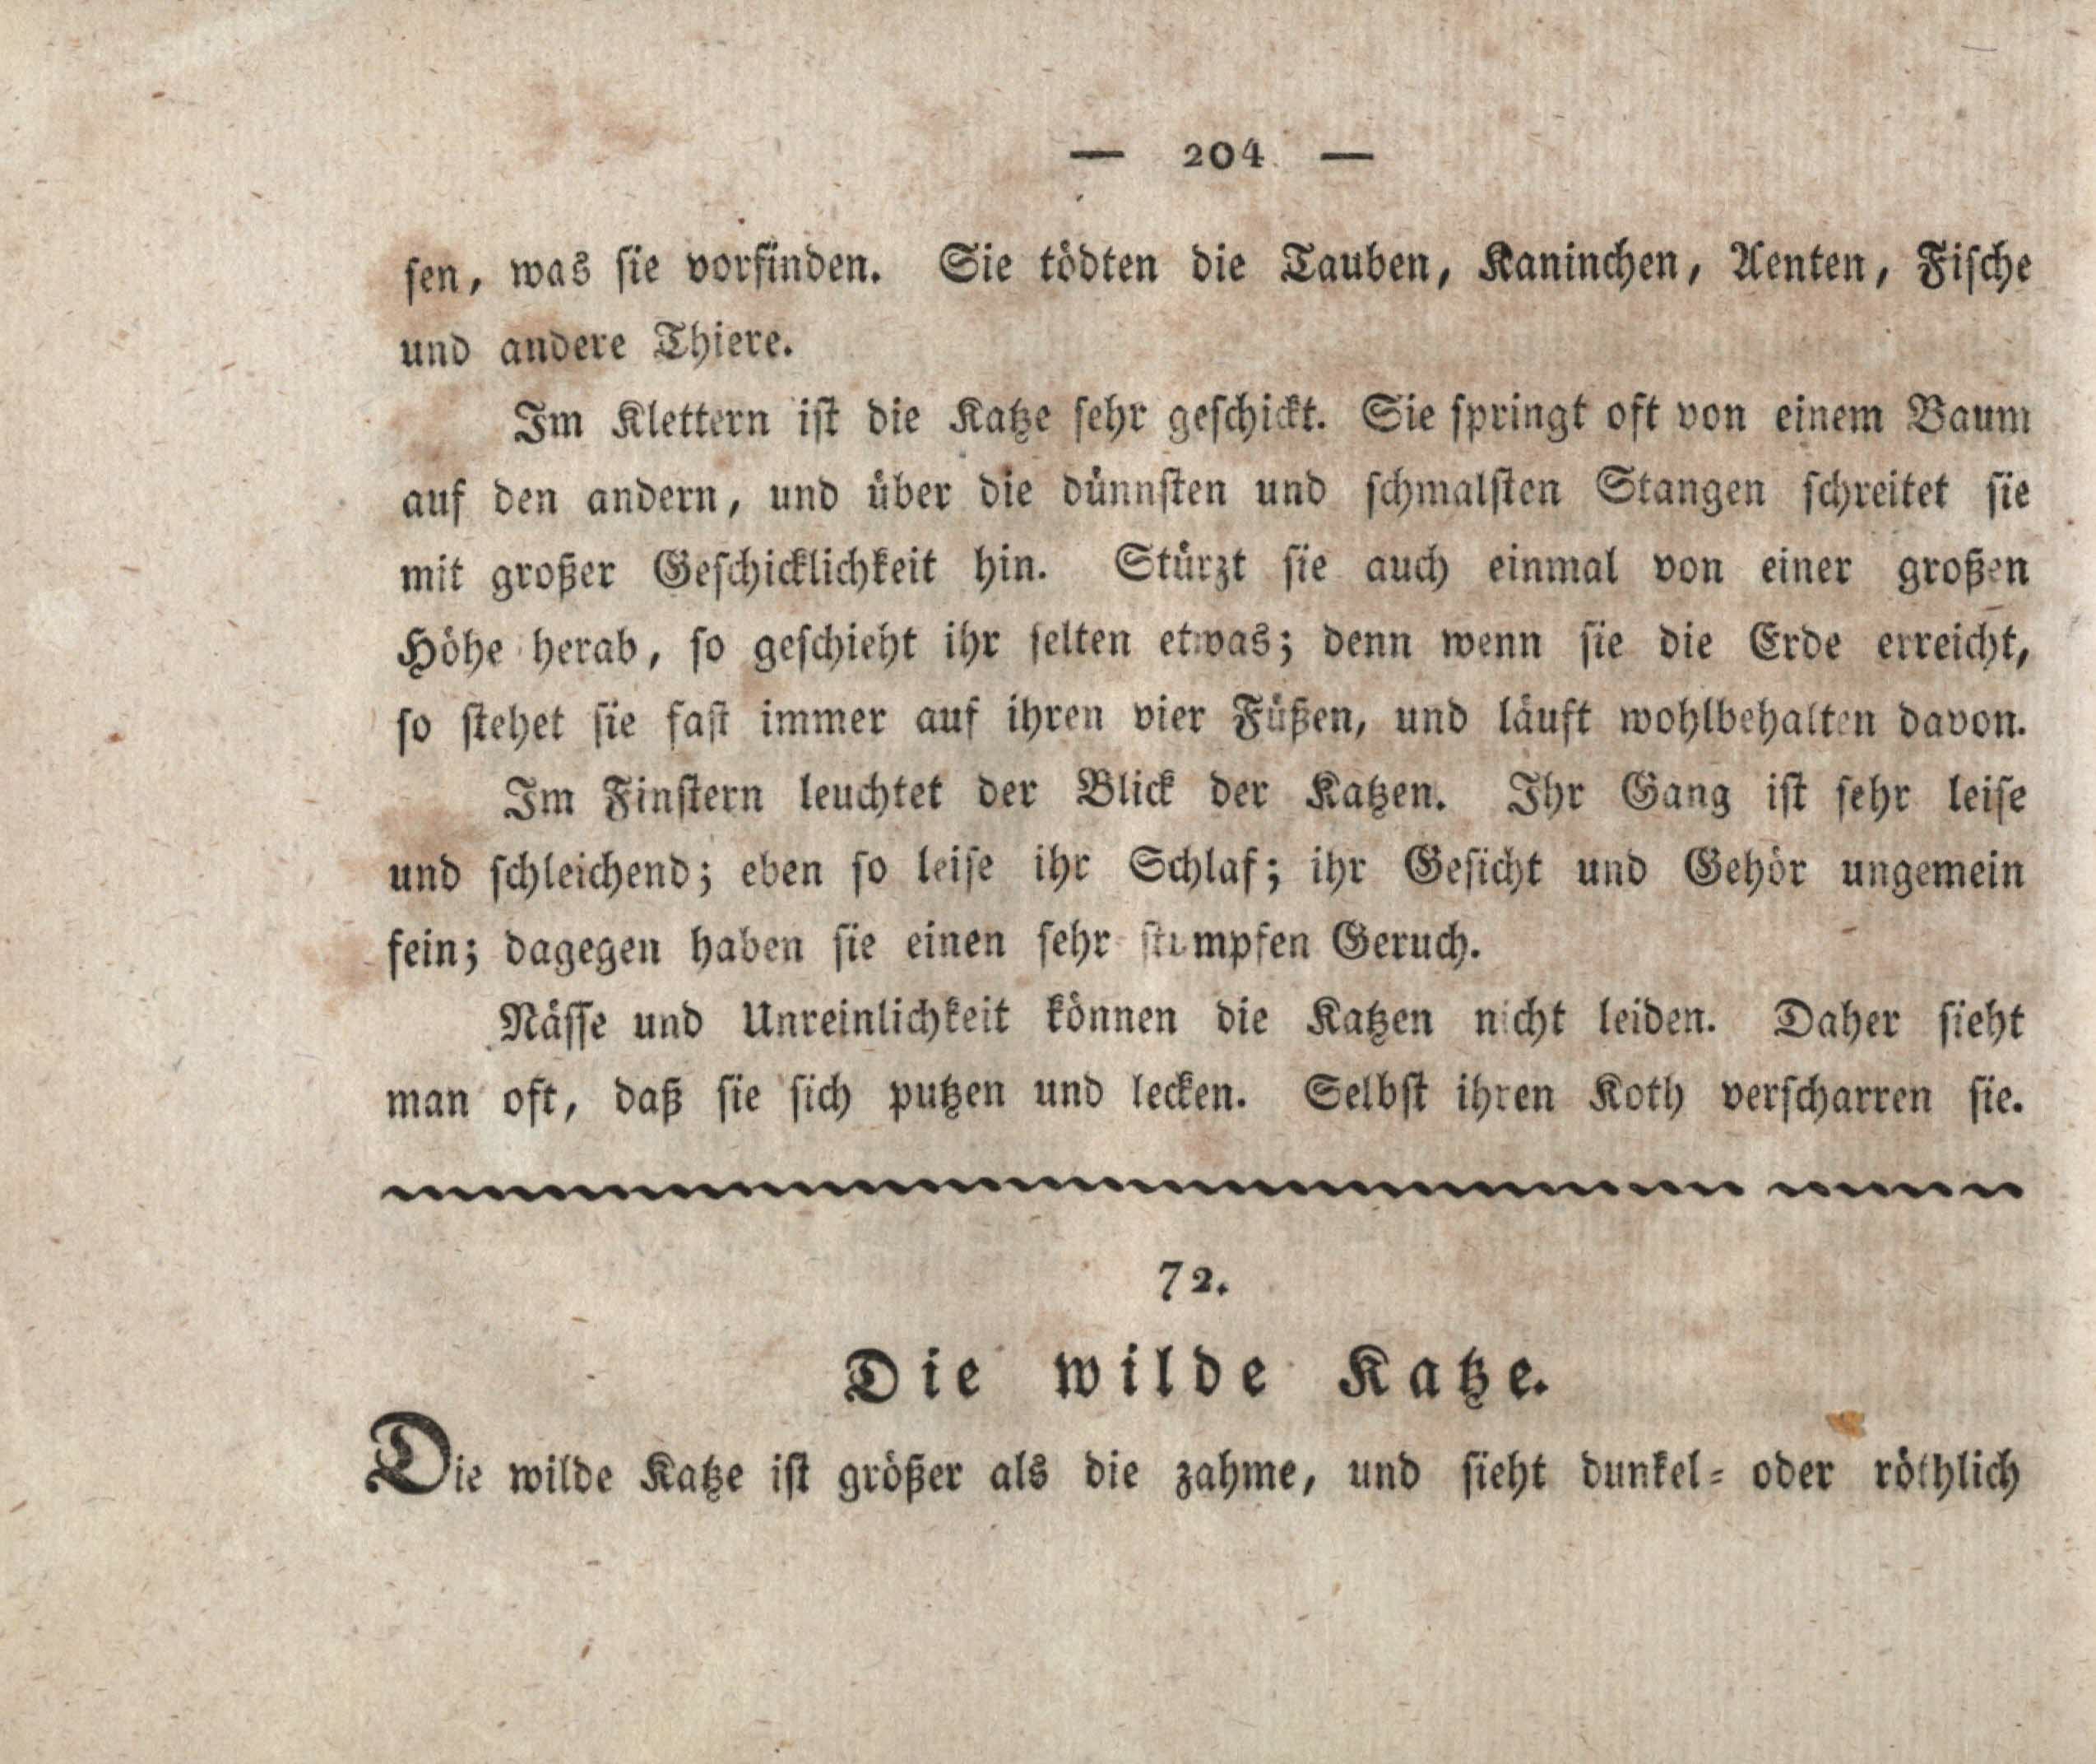 — 204 —
sen, was sie vorfinden. Sie tödten die Tauben, Kaninchen, Aenten, Fische
und andere Thiere.
Im Klettern ist die Katze sehr geschickt. Sie springt oft von einem Baum
auf den andern, und über die dünnsten und schmalsten Stangen schreitet sie
mit großer Geschicklichkeit hin. Stürzt sie auch einmal von einer großen
Höhe herab, so geschieht ihr selten etwas; denn wenn sie die Erde erreicht,
so stehet sie fast immer auf ihren vier Füßen, und läuft wohlbehalten davon.
Im Finstern leuchtet der Blick der Katzen. Ihr Gang ist sehr leise
und schleichend; eben so leise ihr Schlaf; ihr Gesicht und Gehör ungemein
fein; dagegen haben sie einen sehr stumpfen Geruch.
Nässe und Unreinlichkeit können die Katzen nicht leiden. Daher sieht
man oft, daß sie sich putzen und lecken. Selbst ihren Koth verscharren sie.
72.
Die wilde Katze.
Die wilde Katze ist größer als die zahme, und sieht dunkel- oder röthlich